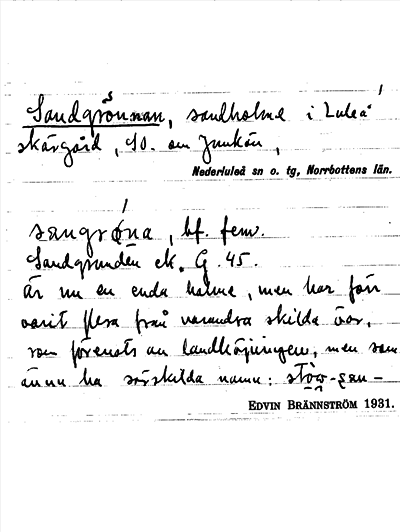 Sandgrönnan, sandholme i Luleå
skärgård, SO. om Junkön,
Nederluleå sn o. tg, Norrbottens län.
sangrǿna, bf. fem.
Sandgrunden ek. G. 45.
Är nu en enda holme, men har förr
varit flera från varandra skilda öar,
som förenats av landhöjningen, men som
ännu ha särskilda namn: stòw-san-
EDVIN BRÄNNSTRÖM 1931.